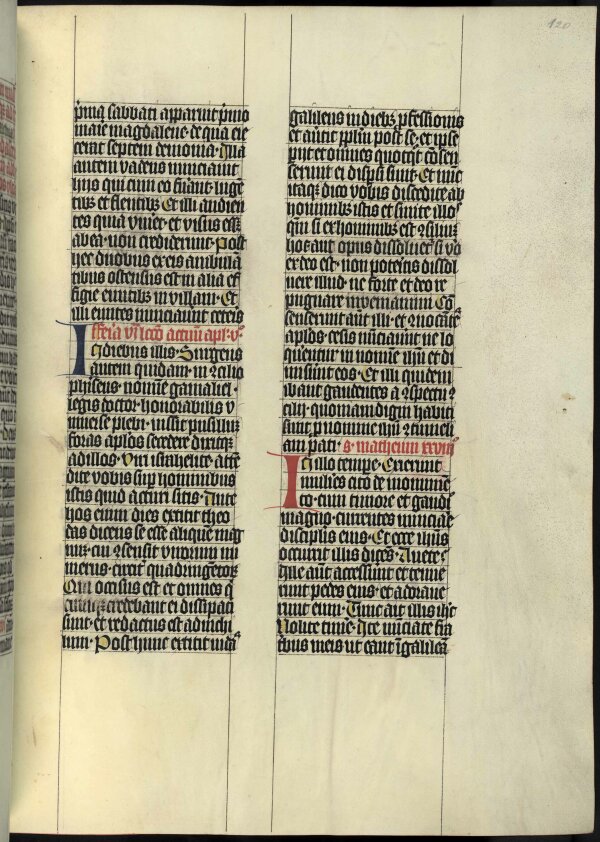 120
prima sabbati apparuit primo
marie magdalene · de qua eie
cerat septem demonia · Illa
autem vadens nunciauit
hijs qui cum eo fuerant luge
tibꝫ et flentibꝫ Et illi audien
tes quia viuer et visus esset
ab ea · non crediderunt · Post
hec duobus ex eis ambulā
tibus ostensus est in alia ef
figie euntibus in villam · Et
illi euntes nunciauerūt ceteris
feria vi lcō actuū apl · v
In diebus illis · Surgens
autem quidam in ↄcilio
phiseus · nomine gamaliel ·
legis doctor · honorabilis v
niuerse plebi · iussit pusillū
foras aplos secedere dixitqꝫ
ad illos · Viri israhelite · attē
dite vobis sup hominibus
istis quid acturi sitis · Ante
hos enim dies extitit theo
das dicens se esse aliquē mag
nū · cui ↄsensit virorum nu
merus · circit̄ quadringētoꝝ
Qui occisus est et omnes q̄
cumqꝫ credebant ei dissipati
sunt · et redactus est ad nichi
lum · Post hunc extitit iudas
galileus in diebꝫ pfessionis
et auīt pplm post se · et ipse
piit et omnes quotqt cōsen
serunt ei dispsi sunt · Et nūc
itaqꝫ dico vobis discedite ab
hominibꝫ istis et sinite illos
qm si ex hominibꝫ est ↄsiliū
hoc aut opus dissoluet̄ si vo
ex deo est · non poteritis dissol
uere illud · ne forte et deo re
pugnare inveniamini Cō
senserunt aut illi · et ↄuocātes
aplos · cesis nūciauerūt ne lo
querentur in nomine ihū et di
miserūt eos · Et illi quidem
ibant gaudentes a ↄspectu ↄ
cilij · quoniam digni habiti
sunt p nomine ihū ↄtumeli
am pati · s · matheum xxviii
In illo tempe · Exierunt
mulies cito de monumē
to · cum timore et gaudio
magno · currentes nunciare
disciplis eius · Et ecce ihūs
occurrit illis dicēs · Auete ·
Ille aut accesserūt et tenue
runt pedes eius · et adoraue
runt eum · Tunc ait illis ihc
Nolite timē · Ite nūciate fra
tribus meis ut eant ī galileā